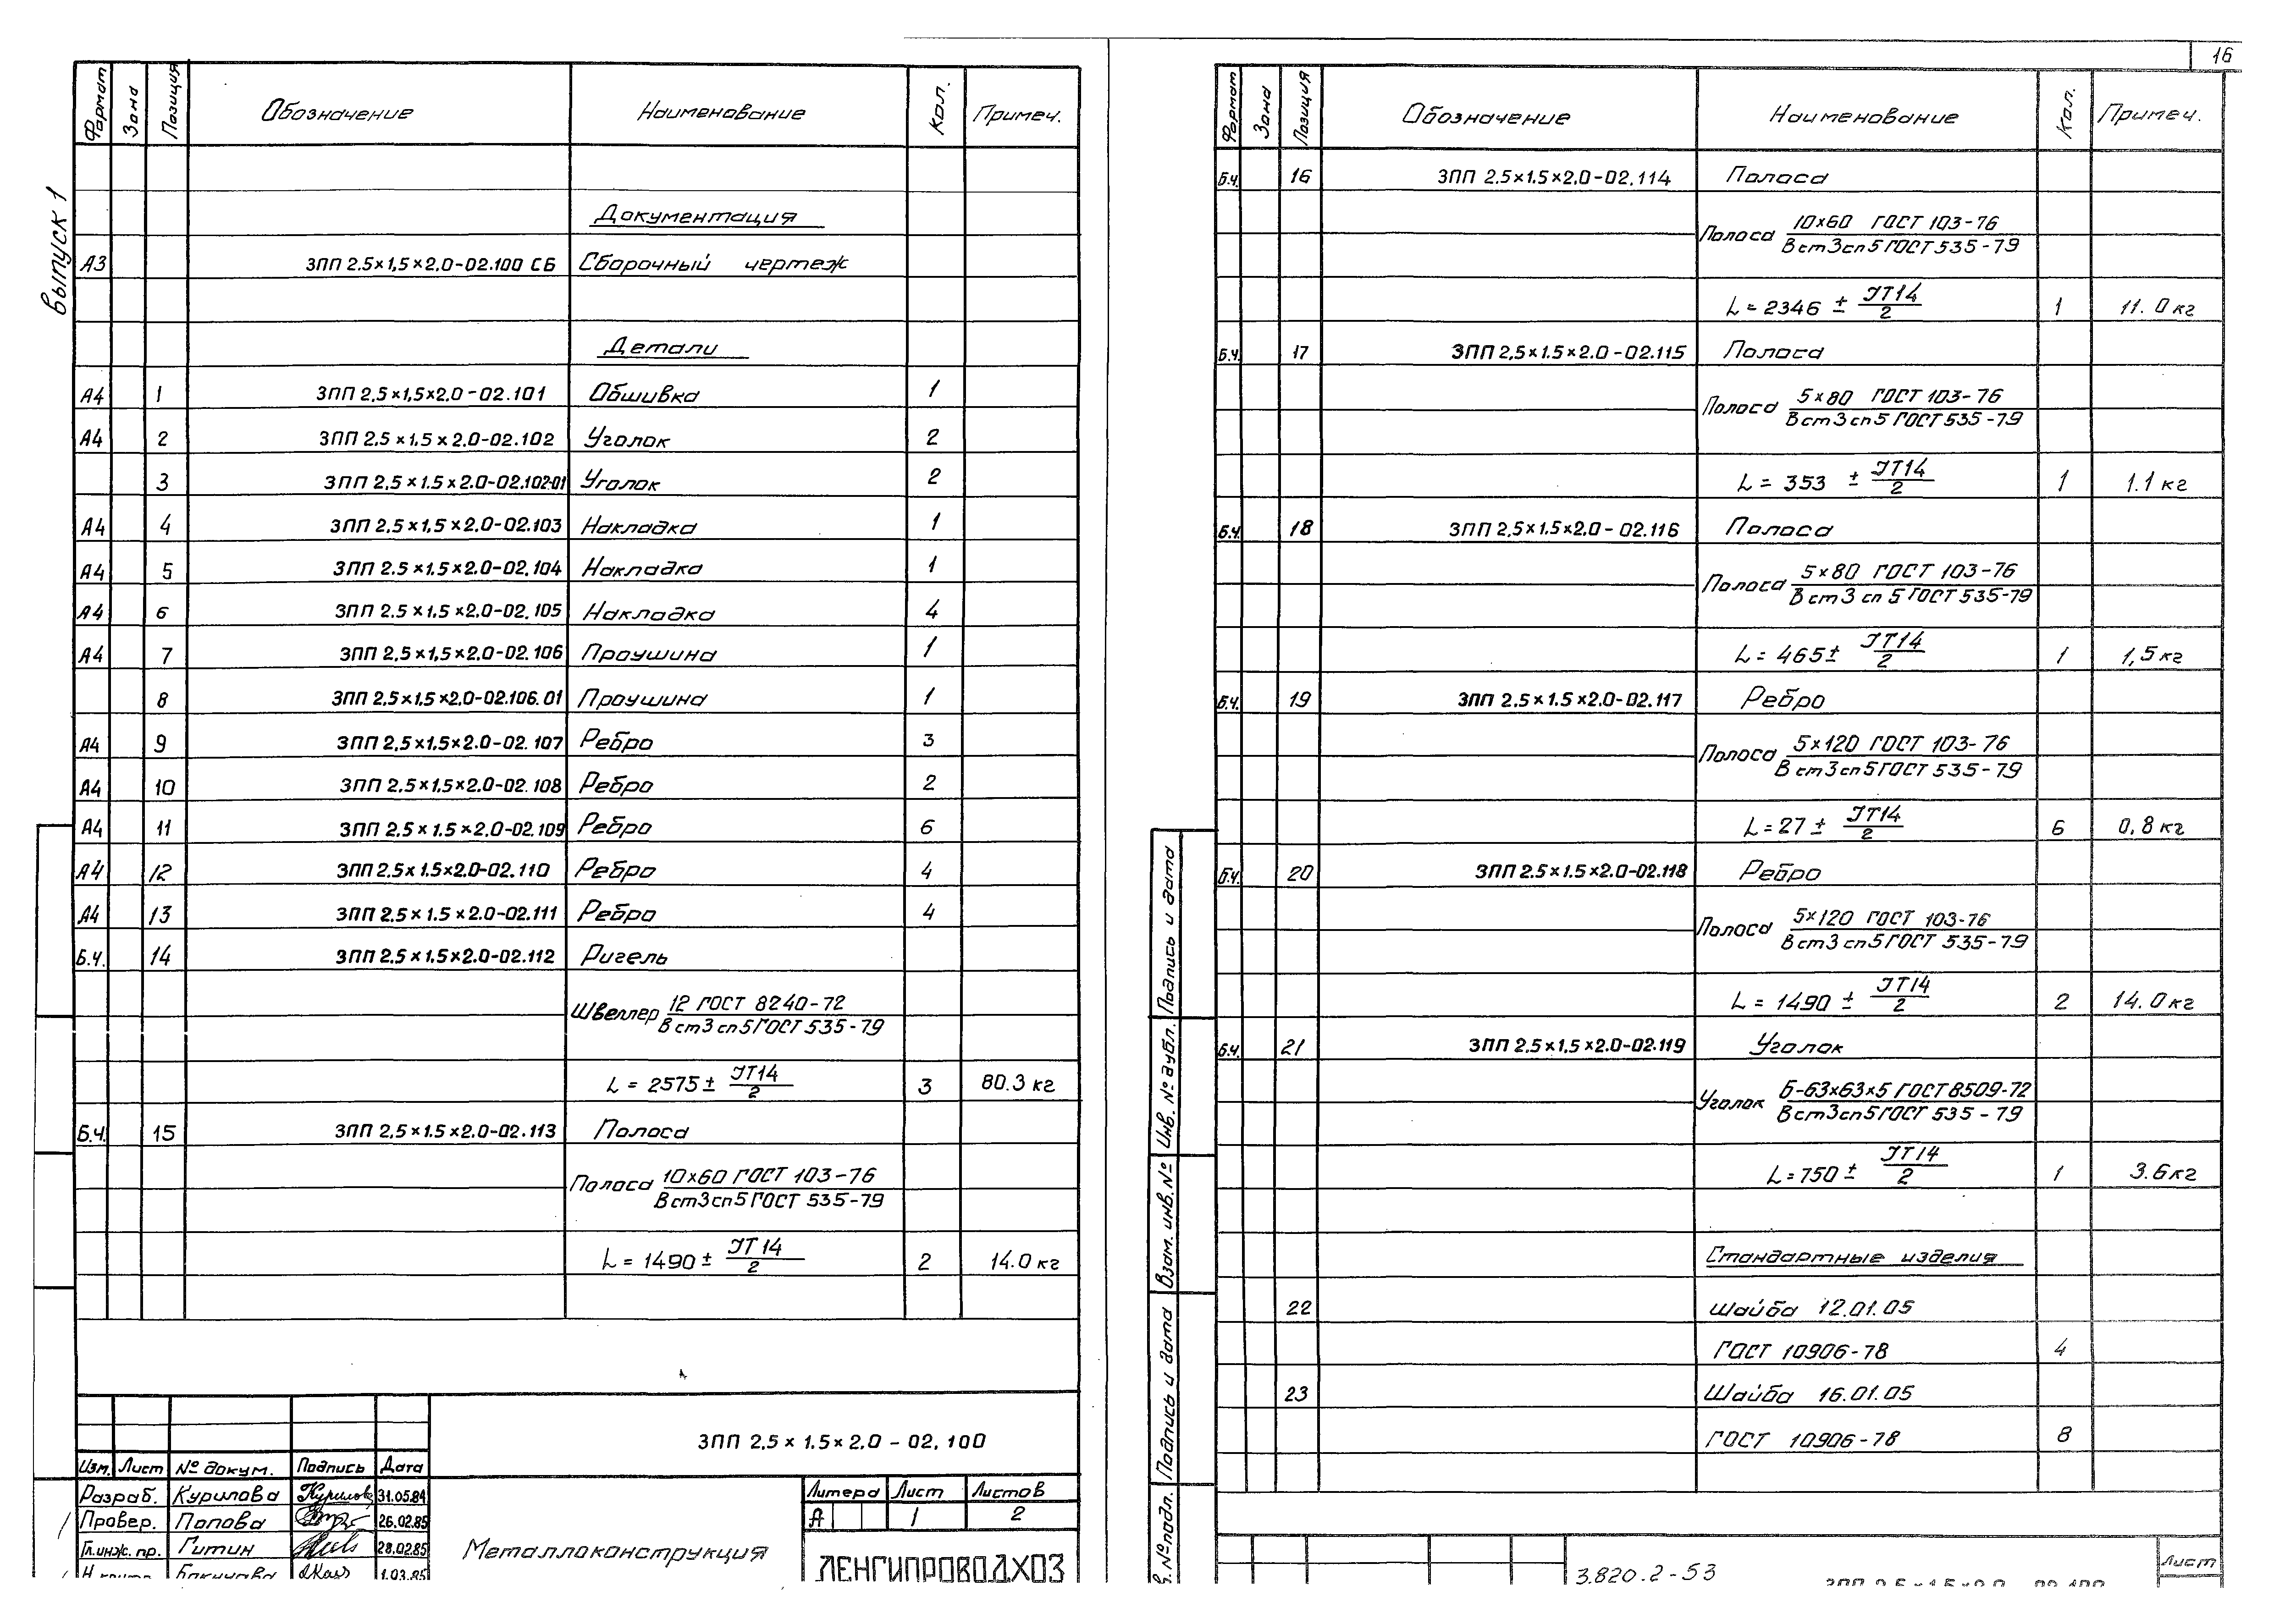 16
Выпуск 1
Формат Зона Позиция Обозначение Наименование Кол. Примеч.
Документация
А3 ЗПП 2.5×1,5×2.0-02.100 СБ Сборочный чертеж
Детали
А4 1 ЗПП 2,5×1,5×2.0-02.101 Обшивка 1
А4 2 ЗПП 2.5×1,5×2.0-02.102 Уголок 2
3 ЗПП 2,5×1.5×2.0-02.102-01 Уголок 2
А4 4 ЗПП 2,5×1,5×2.0-02.103 Накладка 1
А4 5 ЗПП 2.5×1.5×2.0-02.104 Накладка 1
А4 6 ЗПП 2.5×1.5×2.0-02.105 Накладка 4
А4 7 ЗПП 2,5×1,5×2.0-02.106 Проушина 1
8 ЗПП 2,5×1,5×2,0-02.106.01 Проушина 1
А4 9 ЗПП 2,5×1,5×2.0-02.107 Ребро 3
А4 10 ЗПП 2,5×1.5×2.0-02.108 Ребро 2
А4 11 ЗПП 2.5×1.5×2.0-02.109 Ребро 6
А4 12 ЗПП 2.5×1.5×2.0-02.110 Ребро 4
А4 13 ЗПП 2.5×1.5×2.0-02.111 Ребро 4
Б.ч. 14 ЗПП 2.5×1.5×2.0-02.112 Ригель
Швеллер 12 ГОСТ 8240-72
В ст3 сп5 ГОСТ 535-79
L = 2575 ± JT14/2 3 80.3 кг
Б.ч. 15 ЗПП 2,5×1.5×2.0-02.113 Полоса
Полоса 10х60 ГОСТ 103-76
В ст3 сп5 ГОСТ 535-79
L = 1490 ± JT14/2 2 14.0 кг
ЗПП 2,5×1.5×2,0-02.100
Изм. Лист № докум. Подпись Дата
Разраб. Курилова 31.05.84
Провер. Попова 26.02.85
Гл.инж.пр. Гитин 28.02.85
1.03.85
Металлоконструкция
Литера Лист Листов
А 1 2
ЛЕНГИПРОВОДХОЗ
Формат Зона Позиция Обозначение Наименование Кол. Примеч.
Б.ч. 16 ЗПП 2.5×1.5×2.0-02.114 Полоса
Полоса 10х60 ГОСТ 103-76
В ст3 сп5 ГОСТ 535-79
L = 2346 ± JT14/2 1 11.0 кг
Б.ч. 17 ЗПП 2,5×1.5×2.0-02.115 Полоса
Полоса 5×80 ГОСТ 103-76
В ст3 сп5 ГОСТ 535-79
L = 353 ± JT14/2 1 1.1 кг
Б.ч. 18 ЗПП 2,5×1.5×2.0-02.116 Полоса
Полоса 5×80 ГОСТ 103-76
В ст3 сп5 ГОСТ 535-79
L = 465 ± JT14/2 1 1,5 кг
Б.ч. 19 ЗПП 2.5×1.5×2.0-02.117 Ребро
Полоса 5×120 ГОСТ 103-76
В ст3 сп5 ГОСТ 535-79
L = 27 ± JT14/2 6 0,8 кг
Б.ч. 20 ЗПП 2.5×1.5×2.0-02.118 Ребро
Полоса 5×120 ГОСТ 103-76
В ст3 сп5 ГОСТ 535-79
L = 1490 ± JT14/2 2 14.0 кг
Б.ч. 21 ЗПП 2,5×1,5×2.0-02.119 Уголок
Уголок Б-63х63х5 ГОСТ 8509-72
В ст3 сп5 ГОСТ 535-79
L = 750 ± JT14/2 1 3.6 кг
Стандартные изделия
22 Шайба 12.01.05
ГОСТ 10906-78 4
23 Шайба 16.01.05
ГОСТ 10906-78 8
Подпись и дата
Инв. № дубл.
Взам. инв. №
Подпись и дата
№ подл.
3.820.2-53
Лист